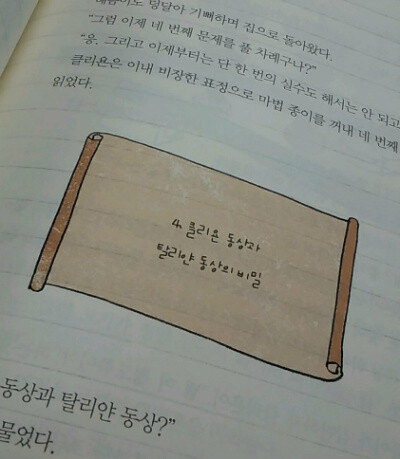 덩달아 기뻐하며 집으로 돌아왔다.
"그럼 이제 네 번째 문제를 풀 차례구나?"
"응, 그리고 이제부터는 단 한 번의 실수도 해서는 안 되고
클리욘은 이내 비장한 표정으로 마법 종이를 꺼내 네 번째
읽었다.
4. 클리욘 동상과
탈리얀 동상의 비밀
동상과 탈리얀 동상?"
물었다.